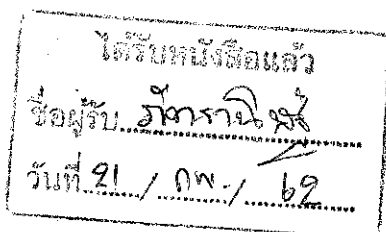 ได้รับหนังสือแล้ว
ชื่อผู้รับ
วันที่ 21 / กพ. / 62